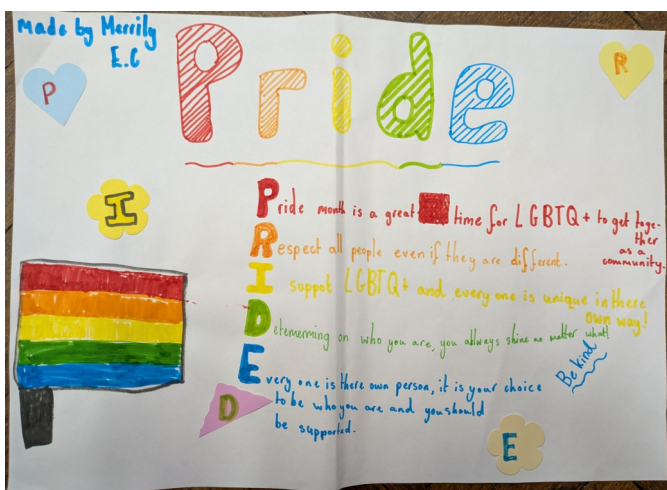 made by Merrily
E.C
Pride
P
R
I
Pride month is a great time for LGBTQ+ to get toge-
ther
as a
community.
Respect all people even if they are different.
I suppot LGBTQ+ and every one is unique in there
own way!
Detemerning on who you are, you always shine no matter what!
Every one is there own person, it is your choice
to be who you are and you should
be supported.
Be kind
D
E